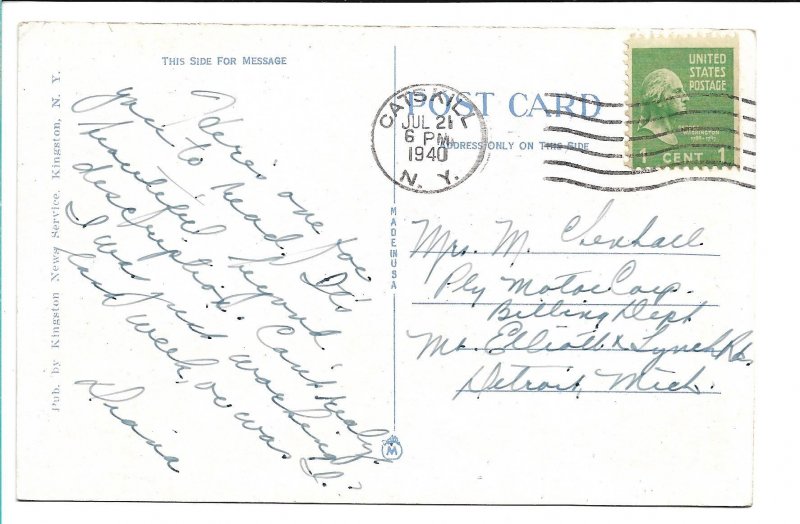 THIS SIDE FOR MESSAGE
POST CARD
ADDRESS ONLY ON THIS SIDE
CATSKILL
JUL 21
6 PM
1940
N. Y.
UNITED
STATES
POSTAGE
WASHINGTON
1 CENT 1
Here's one for
you to read. It's
beautiful beyond
description. Can't realy
I was just working
last week, or was I.
Diana
Mrs. M.
Ply Motor Corp.
Billing Dept
Mt. Elliott & Lynch Rd.
Detroit, Mich.
MADE IN USA
M
Pub. by Kingston News Service, Kingston, N. Y.